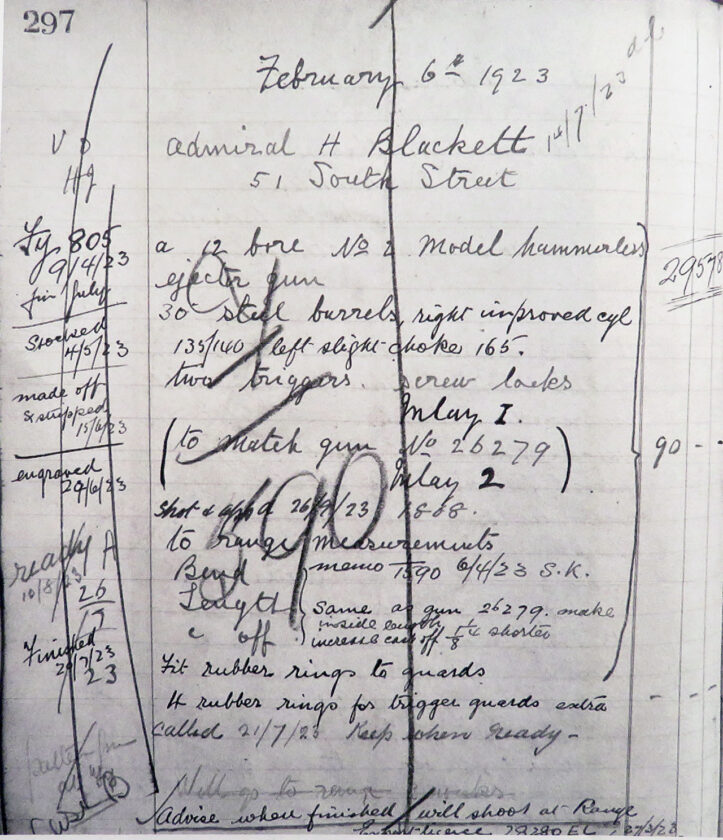 297
February 6th 1923
Admiral H Blackett
51 South Street
1st/7/23
V O
HJ
Fy 805
9/4/23
for July
Stocked
4/5/23
made off
& stripped
15/6/23
engraved
29/6/23
ready
10/8/23
26
7
23
Finished
a 12 bore No 2 Model hammerless
ejector gun
30" steel barrels, right improved cyl
135/140 left slight choke 165.
two triggers. screw locks
Inlay I.
(to match gun No 26279)
Inlay 2
29578
90 - -
390
shot & appd 26/7/23
to range measurements
Bend memo 1590 6/4/23 S.K.
Length Same as gun 26279. make
inside length 1/4 shorter
" off increase cast off 1/8
Fit rubber rings to guards
4 rubber rings for trigger guards extra
- - -
called 21/7/23 Keep when ready -
Will go to range
Advise when finished will shoot at Range